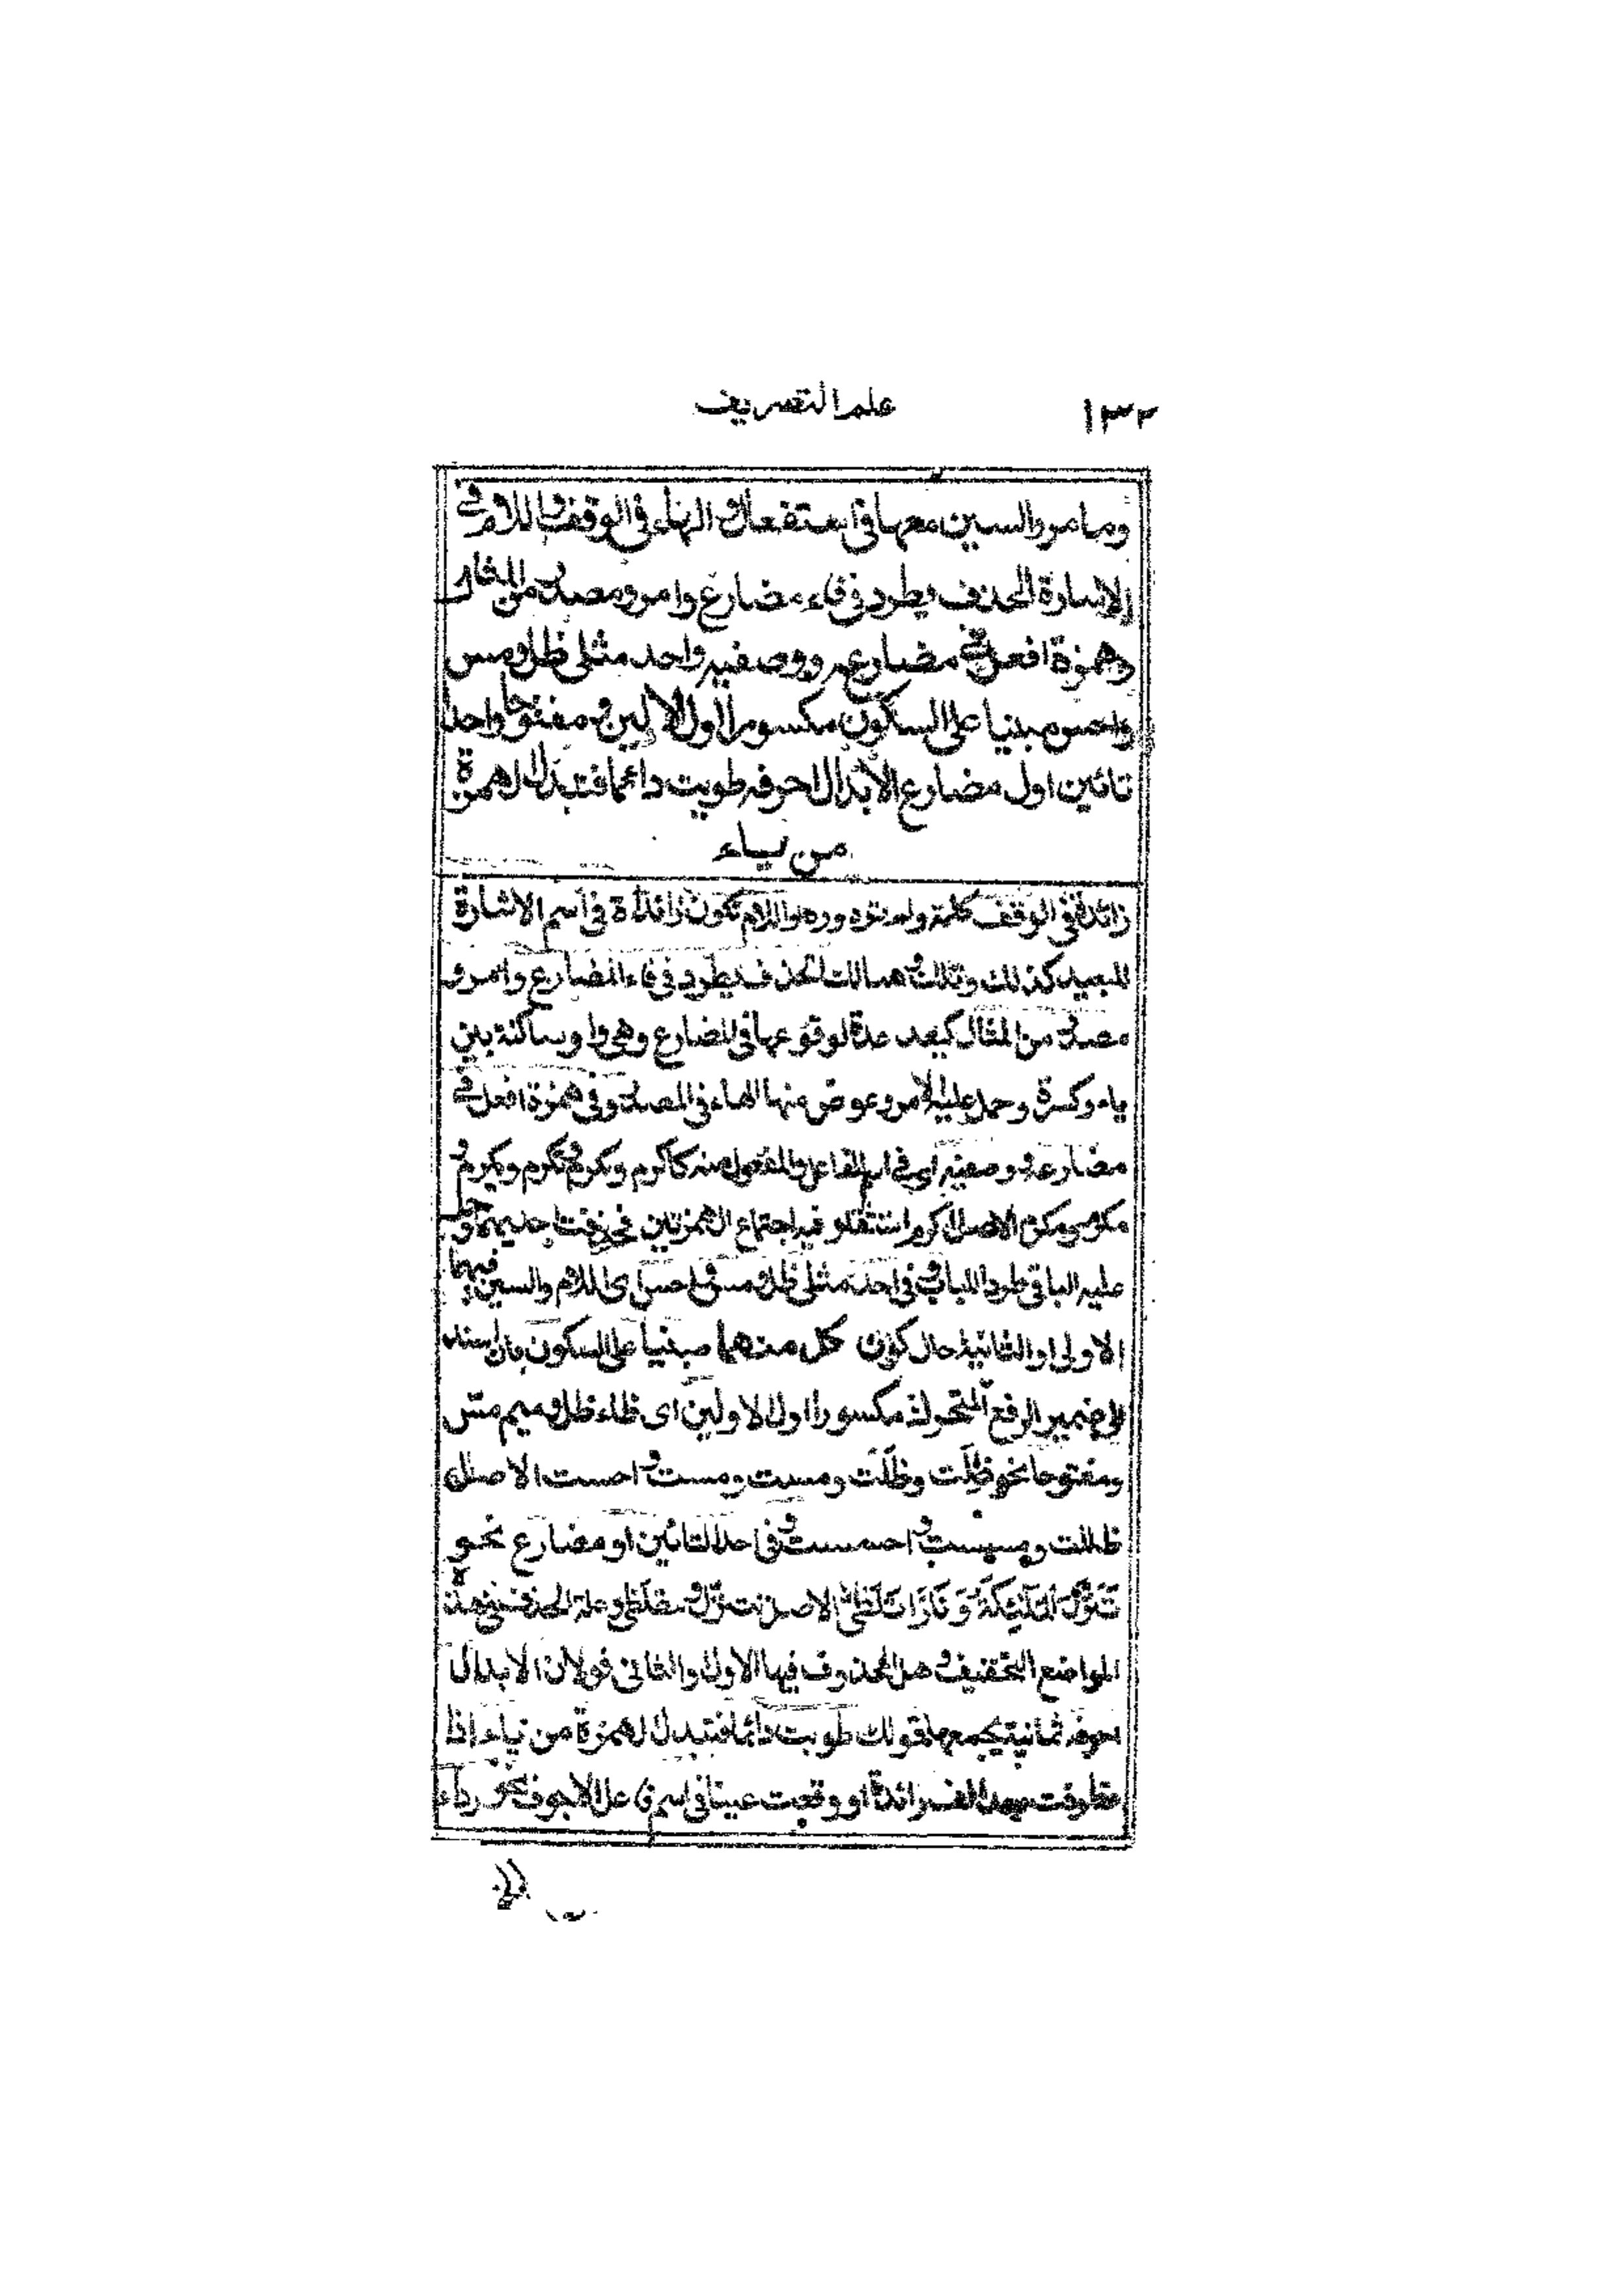 ١٣٢ علم التصريف
وما مر والسين معها في استفعال والهاء في الوقف واللام في
الاشارة الحذف يطرد في فاء مضارع وامر ومصدر من المثال
وهمزة افعل في مضارعه ووصفيه واحد مثلى ظل ومس
واحس مبنيا على السكون مكسورا اول الاولين ومفتوحا واحد
تائين اول مضارع الابدال احرفه طويت دائما فتبدل الهمزة
من ياء
زائدة في الوقف كلمه ولم تره وره واللام تكون زائدة في اسم الاشارة
للبعيد كذلك وتلك وهنالك الحذف يطرد في فاء المضارع وامر و
مصدر من المثال كيعد عدة لوقوعها في المضارع وهي واو ساكنة بين
ياء وكسرة وحمل عليه الامر وعوض منها الهاء في المصدر وفي همزة افعل في
مضارعه ووصفيه اي في اسم الفاعل والمفعول منه كاكرم ونكرم وتكرم ويكرم و
مكرم ومكرم الاصل اكرم استثقلوا فيه اجتماع الهمزتين فحذفت احديهما وحمل
عليه الباقي طرد اللباب وفي احد مثلى ظل ومس واحس اى اللام والسين فيهما
الاولى او الثانية حال كون كل منهما مبنيا على السكون بان اسند
الى ضمير الرفع المتحرك مكسورا اول الاولين اى ظاء ظل وميم مس
ومفتوحا نحو ظلت وظلت ومست ومست واحست الاصل
ظللت ومسست واحسست وفي احد التائين او مضارع نحو
تَنَزَّلُ الْمَلٰئِكَةُ وَ نَارًا تَلَظّٰى الاصل تتنزل وتتلظى وعلة الحذف في هذه
المواضع التخفيف وهل المحذوف فيها الاول او الثاني قولان الابدال
احرفه ثمانية يجمعها قولك طويت دائما فتبدل الهمزة من ياء اذا
تطرفت بعد الف زائدة او وقعت عينا في اسم فاعل الاجوف نحو رداء